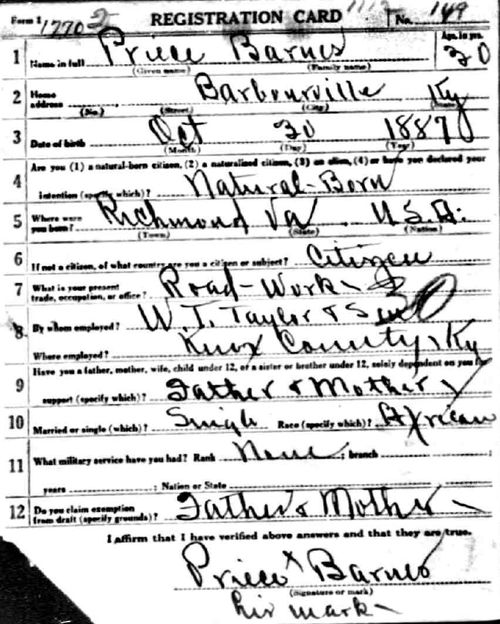 Form 1 17702 REGISTRATION CARD No. 149
1 Name in full Priece Barnes Age, in yrs. 30
(Given name) (Family name)
2 Home address Barbourville Ky
(No.) (Street) (City) (State)
3 Date of birth Oct 30 1887
(Month) (Day) (Year)
Are you (1) a natural-born citizen, (2) a naturalized citizen, (3) an alien, (4) or have you declared your
4 intention (specify which)? Natural-Born
5 Where were you born? Richmond Va U.S.A.
(Town) (State) (Nation)
6 If not a citizen, of what country are you a citizen or subject? Citizen
7 What is your present trade, occupation, or office? Road-Work
8 By whom employed? W. T. Taylor & Son
Where employed? Knox County, Ky
Have you a father, mother, wife, child under 12, or a sister or brother under 12, solely dependent on you for
9 support (specify which)? Father & Mother
10 Married or single (which)? Single Race (specify which)? African
11 What military service have you had? Rank None ; branch
years ; Nation or State
12 Do you claim exemption from draft (specify grounds)? Father & Mother
I affirm that I have verified above answers and that they are true.
Priece X Barnes
(Signature or mark)
his mark